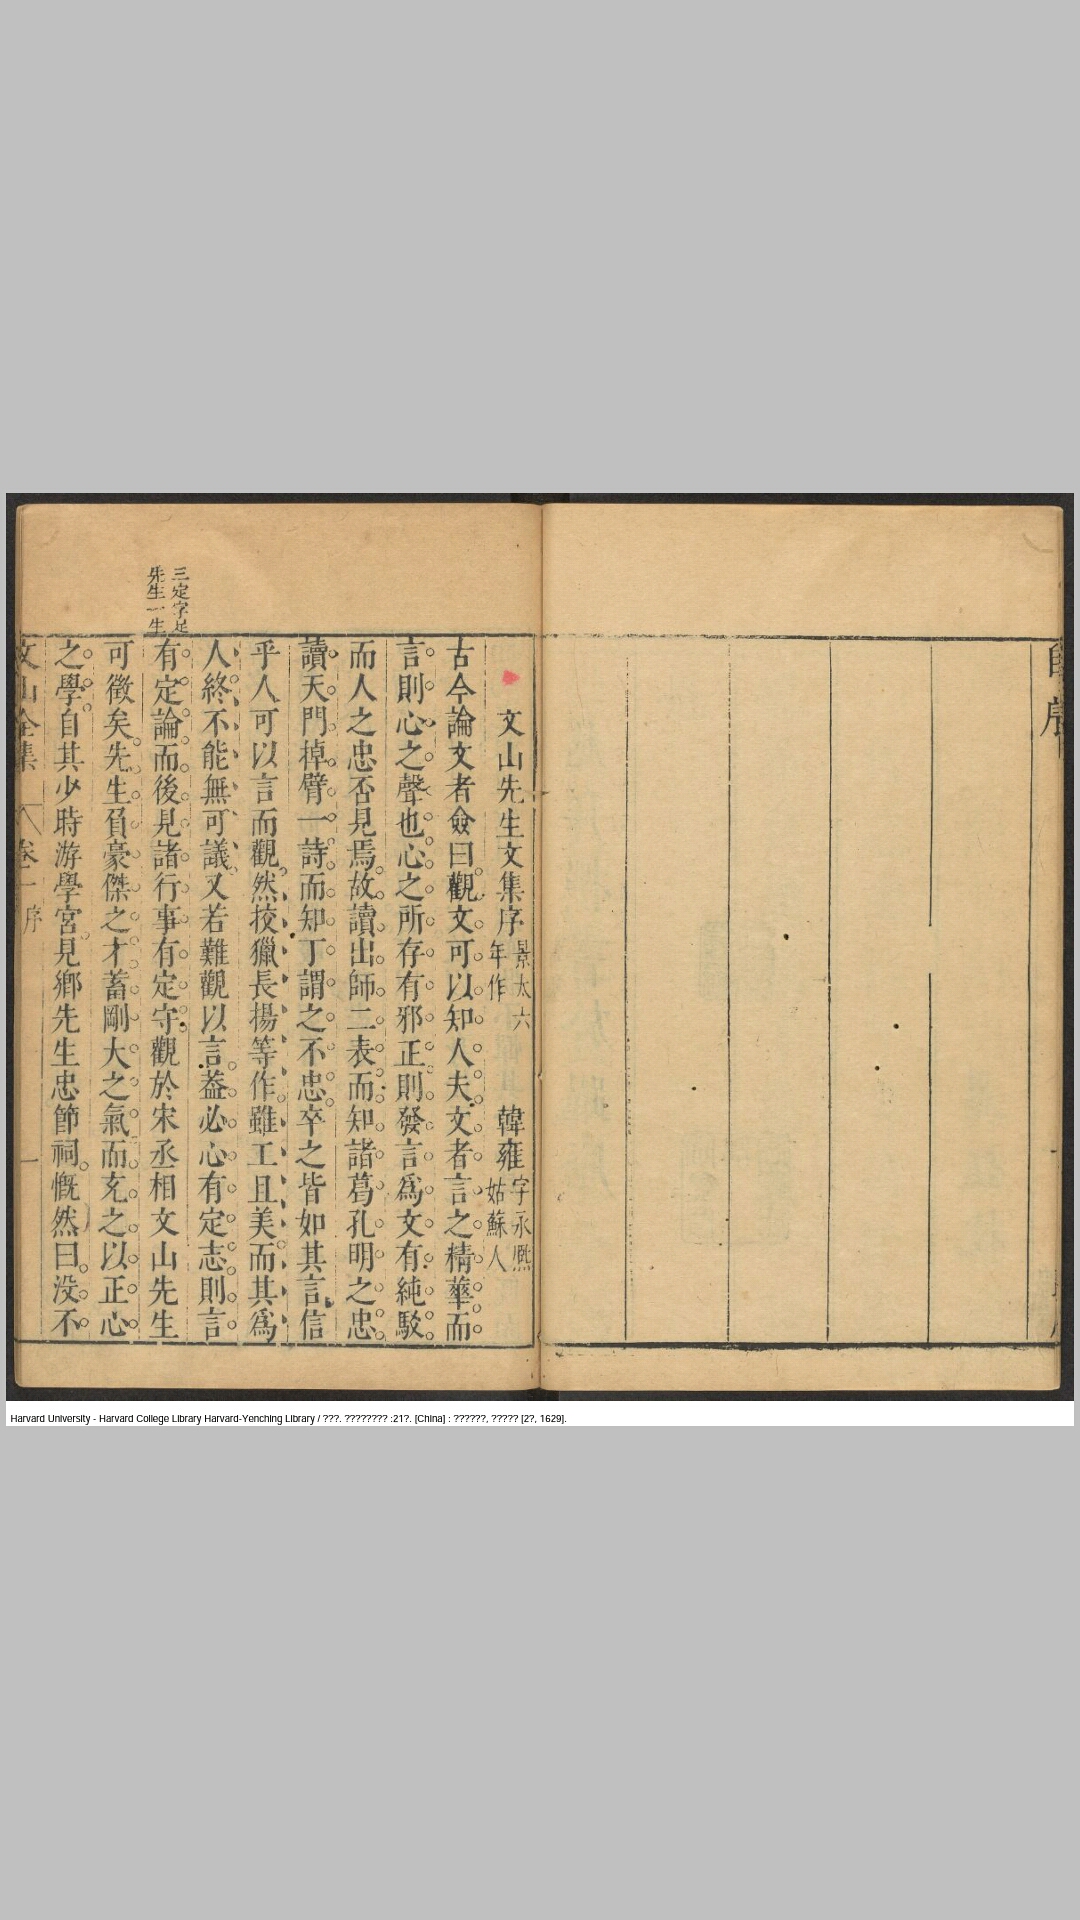 文山先生文集序 景太六年作 韓雍 字永熈姑蘇人
古今論文者僉曰觀文可以知人夫文者言之精華而
言則心之聲也心之所存有邪正則發言爲文有純駁
而人之忠否見焉故讀出師二表而知諸葛孔明之忠
讀天門掉臂一詩而知丁謂之不忠卒之皆如其言信
乎人可以言而觀然挍獵長揚等作雖工且美而其爲
人終不能無可議又若難觀以言葢必心有定志則言
三定字足
先生一生
有定論而後見諸行事有定守觀於宋丞相文山先生
可徵矣先生負豪傑之才蓄剛大之氣而充之以正心
之學自其少時游學宮見鄉先生忠節祠慨然曰没不
文山全集 卷一 序 一
Harvard University - Harvard College Library Harvard-Yenching Library / ???. ???????? :21?. [China] : ??????, ????? [2?, 1629].